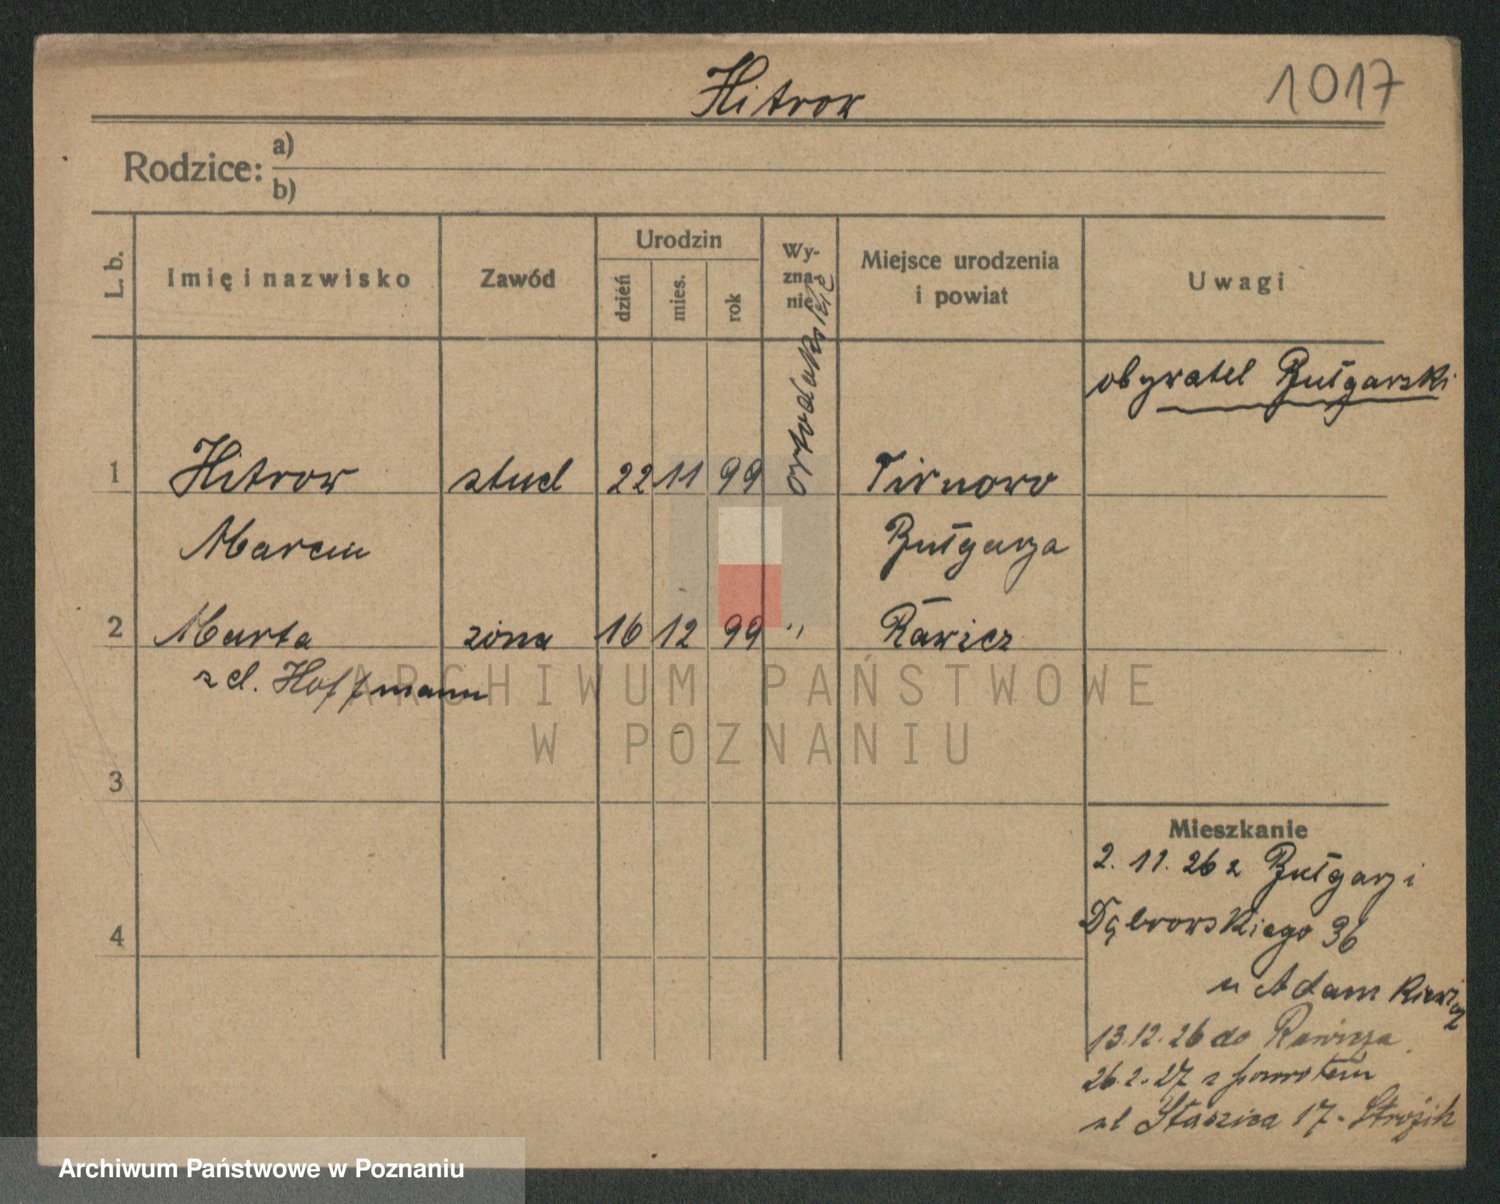 Hitrow
1017
Rodzice: a)
b)
L. b.
Imię i nazwisko
Zawód
Urodzin
dzień
mies.
rok
Wy-
zna-
nie
Miejsce urodzenia
i powiat
Uwagi
obywatel Bułgarski
ortodokskie
1 Hitrow stud 22 11 99 Tirnowo
Marcin Bułgarja
2 Marta żona 16 12 99 " Rawicz
z d. Hoffmann
ARCHIWUM PAŃSTWOWE
W POZNANIU
3
Mieszkanie
2. 11. 26 z Bułgarji
Dąbrowskiego 36
4
u Adamkiewicz
13.12.26 do Rawicza
26.2.27 z powrotem
ul Staszica 17 - Strożik
Archiwum Państwowe w Poznaniu